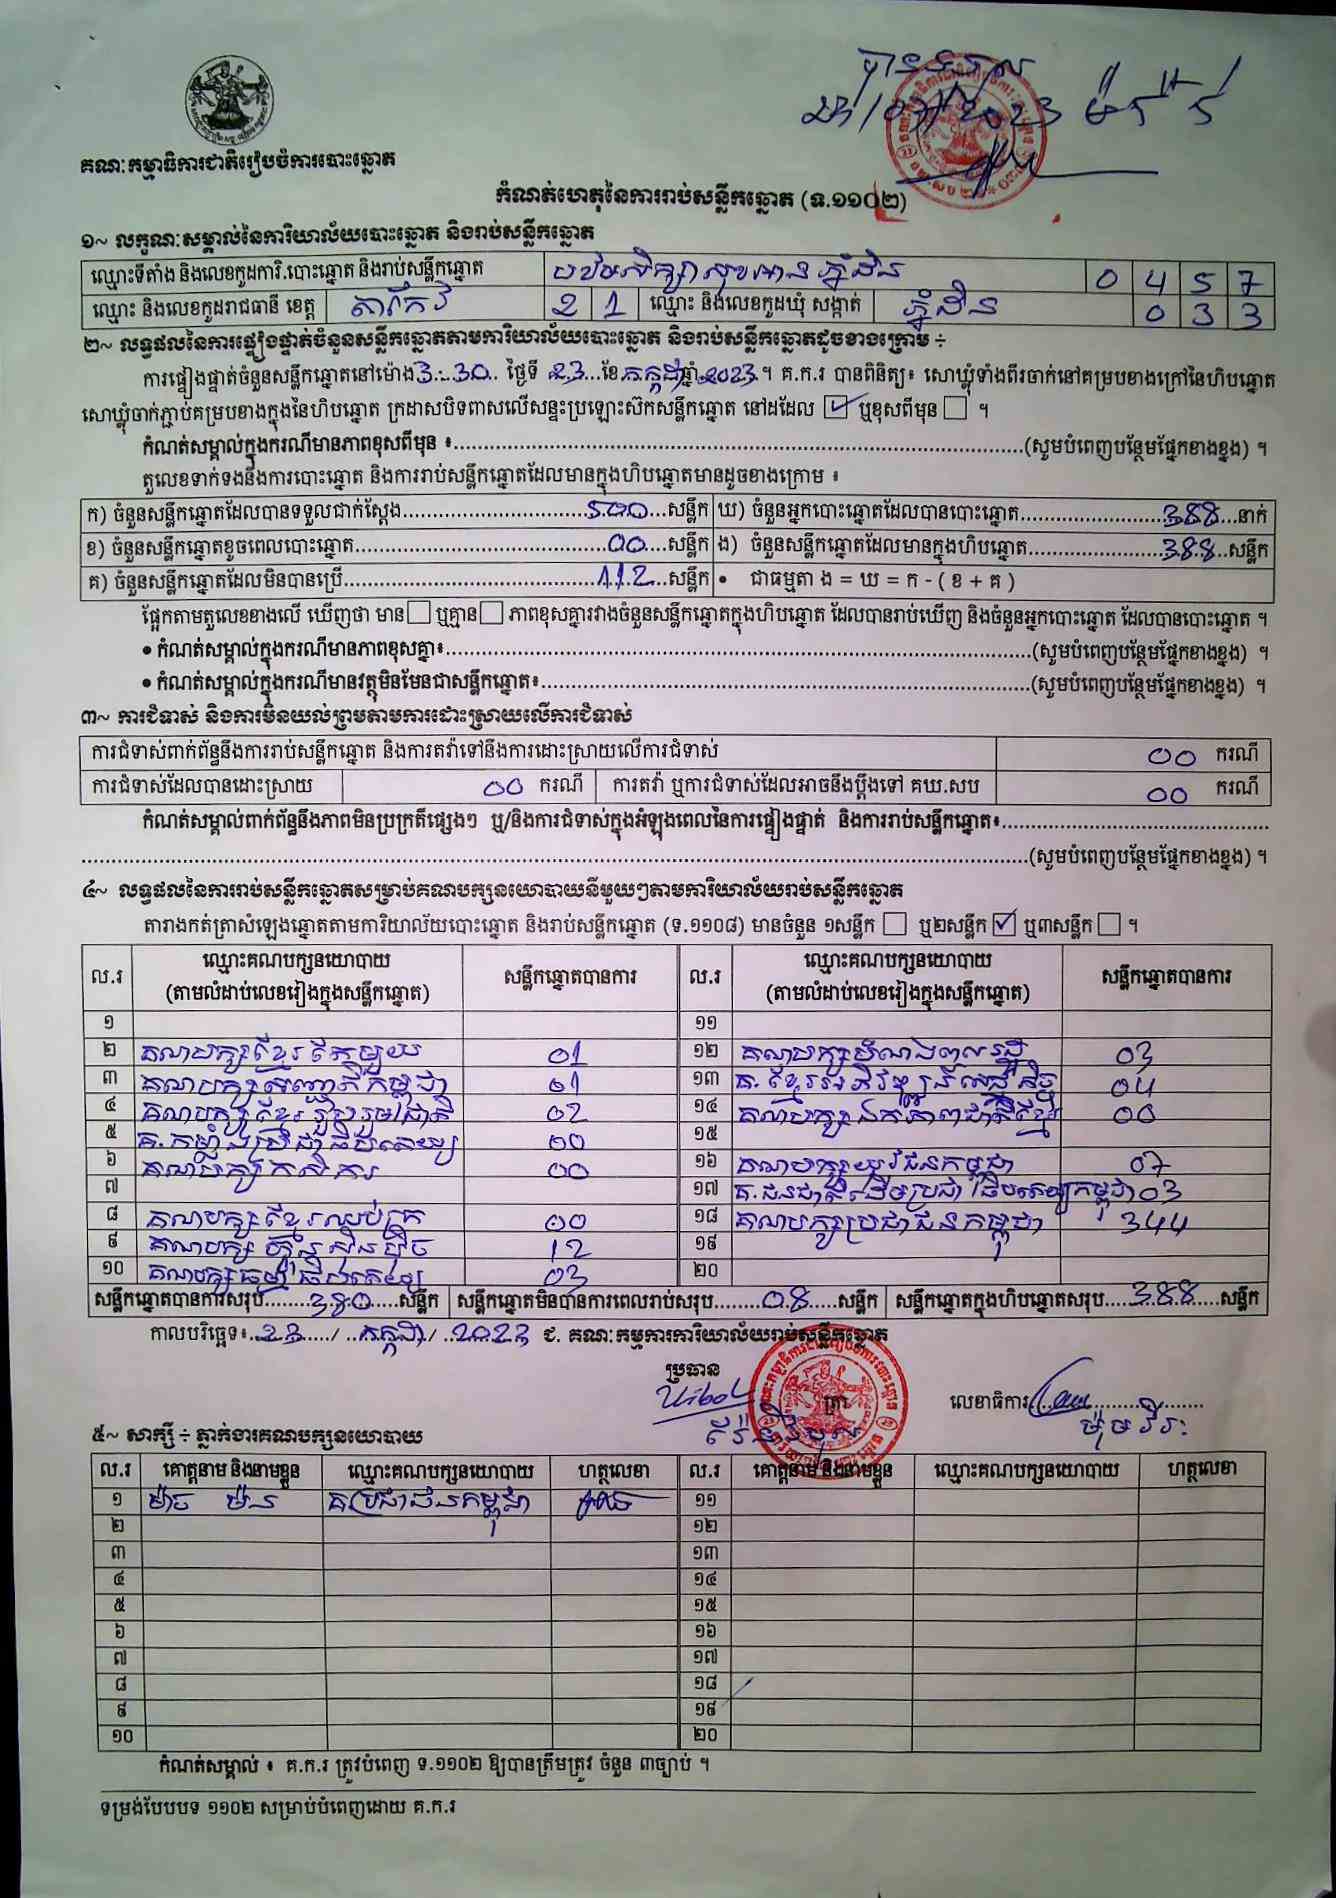 គណៈកម្មាធិការជាតិរៀបចំការបោះឆ្នោត
កំណត់ហេតុនៃការរាប់សន្លឹកឆ្នោត (ទ.១១០២)
១~ លក្ខណៈសម្គាល់នៃការិយាល័យបោះឆ្នោត និងរាប់សន្លឹកឆ្នោត
ឈ្មោះទីតាំង និងលេខកូដការិ.បោះឆ្នោត និងរាប់សន្លឹកឆ្នោត 0 4 5 7
ឈ្មោះ និងលេខកូដរាជធានី ខេត្ត តាកែវ 2 1 ឈ្មោះ និងលេខកូដឃុំ សង្កាត់ ភ្នំដិន 0 3 3
២~ លទ្ធផលនៃការផ្ទៀងផ្ទាត់ចំនួនសន្លឹកឆ្នោតតាមការិយាល័យបោះឆ្នោត និងរាប់សន្លឹកឆ្នោតដូចខាងក្រោម ÷
ការផ្ទៀងផ្ទាត់ចំនួនសន្លឹកឆ្នោតនៅម៉ោង 3:30 ថ្ងៃទី 23 ខែ កក្កដា ឆ្នាំ 2023 ។ គ.ក.រ បានពិនិត្យ៖ សោឃ្លុំទាំងពីរចាក់នៅគម្របខាងក្រៅនៃហិបឆ្នោត
សោឃ្លុំចាក់ភ្ជាប់គម្របខាងក្នុងនៃហិបឆ្នោត ក្រដាសបិទពាសលើសន្ទះប្រឡោះស៊កសន្លឹកឆ្នោត នៅដដែល ☑ ឬខុសពីមុន ☐ ។
កំណត់សម្គាល់ក្នុងករណីមានភាពខុសពីមុន ៖ (សូមបំពេញបន្ថែមផ្នែកខាងខ្នង) ។
តួលេខទាក់ទងនឹងការបោះឆ្នោត និងការរាប់សន្លឹកឆ្នោតដែលមានក្នុងហិបឆ្នោតមានដូចខាងក្រោម ៖
ក) ចំនួនសន្លឹកឆ្នោតដែលបានទទួលជាក់ស្តែង 500 សន្លឹក ឃ) ចំនួនអ្នកបោះឆ្នោតដែលបានបោះឆ្នោត 388 នាក់
ខ) ចំនួនសន្លឹកឆ្នោតខូចពេលបោះឆ្នោត 00 សន្លឹក ង) ចំនួនសន្លឹកឆ្នោតដែលមានក្នុងហិបឆ្នោត 388 សន្លឹក
គ) ចំនួនសន្លឹកឆ្នោតដែលមិនបានប្រើ 112 សន្លឹក • ជាធម្មតា ង = ឃ = ក - ( ខ + គ )
ផ្អែកតាមតួលេខខាងលើ ឃើញថា មាន ☐ ឬគ្មាន ☐ ភាពខុសគ្នារវាងចំនួនសន្លឹកឆ្នោតក្នុងហិបឆ្នោត ដែលបានរាប់ឃើញ និងចំនួនអ្នកបោះឆ្នោត ដែលបានបោះឆ្នោត ។
• កំណត់សម្គាល់ក្នុងករណីមានភាពខុសគ្នា៖ (សូមបំពេញបន្ថែមផ្នែកខាងខ្នង) ។
• កំណត់សម្គាល់ក្នុងករណីមានវត្ថុមិនមែនជាសន្លឹកឆ្នោត៖ (សូមបំពេញបន្ថែមផ្នែកខាងខ្នង) ។
៣~ ការជំទាស់ និងការមិនយល់ព្រមតាមការដោះស្រាយលើការជំទាស់
ការជំទាស់ពាក់ព័ន្ធនឹងការរាប់សន្លឹកឆ្នោត និងការតវ៉ាទៅនឹងការដោះស្រាយលើការជំទាស់ 00 ករណី
ការជំទាស់ដែលបានដោះស្រាយ 00 ករណី ការតវ៉ា ឬការជំទាស់ដែលអាចនឹងប្តឹងទៅ គឃ.សប 00 ករណី
កំណត់សម្គាល់ពាក់ព័ន្ធនឹងភាពមិនប្រក្រតីផ្សេងៗ ឬ/និងការជំទាស់ក្នុងអំឡុងពេលនៃការផ្ទៀងផ្ទាត់ និងការរាប់សន្លឹកឆ្នោត៖
(សូមបំពេញបន្ថែមផ្នែកខាងខ្នង) ។
៤~ លទ្ធផលនៃការរាប់សន្លឹកឆ្នោតសម្រាប់គណបក្សនយោបាយនីមួយៗតាមការិយាល័យរាប់សន្លឹកឆ្នោត
តារាងកត់ត្រាសំឡេងឆ្នោតតាមការិយាល័យបោះឆ្នោត និងរាប់សន្លឹកឆ្នោត (ទ.១១០៨) មានចំនួន ១សន្លឹក ☐ ឬ២សន្លឹក ☑ ឬ៣សន្លឹក ☐ ។
ល.រ ឈ្មោះគណបក្សនយោបាយ (តាមលំដាប់លេខរៀងក្នុងសន្លឹកឆ្នោត) សន្លឹកឆ្នោតបានការ ល.រ ឈ្មោះគណបក្សនយោបាយ (តាមលំដាប់លេខរៀងក្នុងសន្លឹកឆ្នោត) សន្លឹកឆ្នោតបានការ
១ ១១
២ គណបក្សខ្មែរតែមួយ 01 ១២ គណបក្ស 03
៣ គណបក្ស កម្ពុជា 01 ១៣ គ.ខ្មែរអភិវឌ្ឍន៍សេដ្ឋកិច្ច 04
៤ គណបក្សខ្មែររួបរួមជាតិ 02 ១៤ គណបក្សឯកភាពជាតិខ្មែរ 00
៥ គ.កម្លាំងប្រជាធិបតេយ្យ 00 ១៥
៦ គណបក្សកសិករ 00 ១៦ គណបក្សយុវជនកម្ពុជា 07
៧ ១៧ គ.ជនជាតិដើមប្រជាធិបតេយ្យកម្ពុជា 03
៨ គណបក្សខ្មែរឈប់ក្រ 00 ១៨ គណបក្សប្រជាជនកម្ពុជា 344
៩ គណបក្សហ៊្វុនស៊ិនប៉ិច 12 ១៩
១០ គណបក្សធម្មាធិបតេយ្យ 03 ២០
សន្លឹកឆ្នោតបានការសរុប 380 សន្លឹក សន្លឹកឆ្នោតមិនបានការពេលរាប់សរុប 08 សន្លឹក សន្លឹកឆ្នោតក្នុងហិបឆ្នោតសរុប 388 សន្លឹក
កាលបរិច្ឆេទ៖ 23 / កក្កដា / 2023 ជ. គណៈកម្មការការិយាល័យរាប់សន្លឹកឆ្នោត
ប្រធាន
ត្រា លេខាធិការ
៥~ សាក្សី ÷ ភ្នាក់ងារគណបក្សនយោបាយ
ល.រ គោត្តនាម និងនាមខ្លួន ឈ្មោះគណបក្សនយោបាយ ហត្ថលេខា ល.រ គោត្តនាម និងនាមខ្លួន ឈ្មោះគណបក្សនយោបាយ ហត្ថលេខា
១ គ.ប្រជាជនកម្ពុជា ១១
២ ១២
៣ ១៣
៤ ១៤
៥ ១៥
៦ ១៦
៧ ១៧
៨ ១៨
៩ ១៩
១០ ២០
កំណត់សម្គាល់ ៖ គ.ក.រ ត្រូវបំពេញ ទ.១១០២ ឱ្យបានត្រឹមត្រូវ ចំនួន ៣ច្បាប់ ។
ទម្រង់បែបបទ ១១០២ សម្រាប់បំពេញដោយ គ.ក.រ